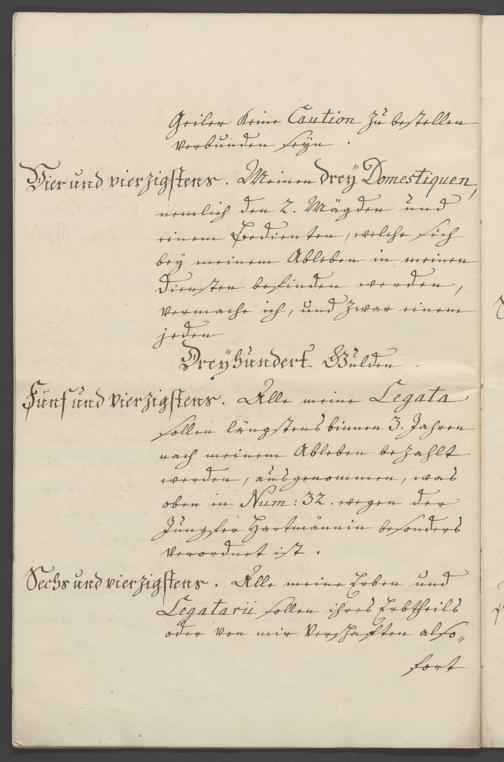 Geiler keine Caution zu bestellen
verbunden seyn.
Vier und vierzigstens. Meinen drey Domestiquen,
nemlich den 2. Mägden und
einem Bedienten, welche sich
bey meinem Ableben in meinen
Diensten befinden werden,
vermache ich, und zwar einem
jeden
Dreyhundert Gulden.
Fünf und vierzigstens. Alle meine Legata
sollen längstens binnen 3. Jahren
nach meinem Ableben bezahlt
werden, ausgenommen, was
oben in Num: 32. wegen der
Jungfer Hartmännin besonders
verordnet ist.
Sechs und vierzigstens. Alle meine Erben und
Legatarii sollen ihres Erbtheils
oder von mir Verschafften also„
fort